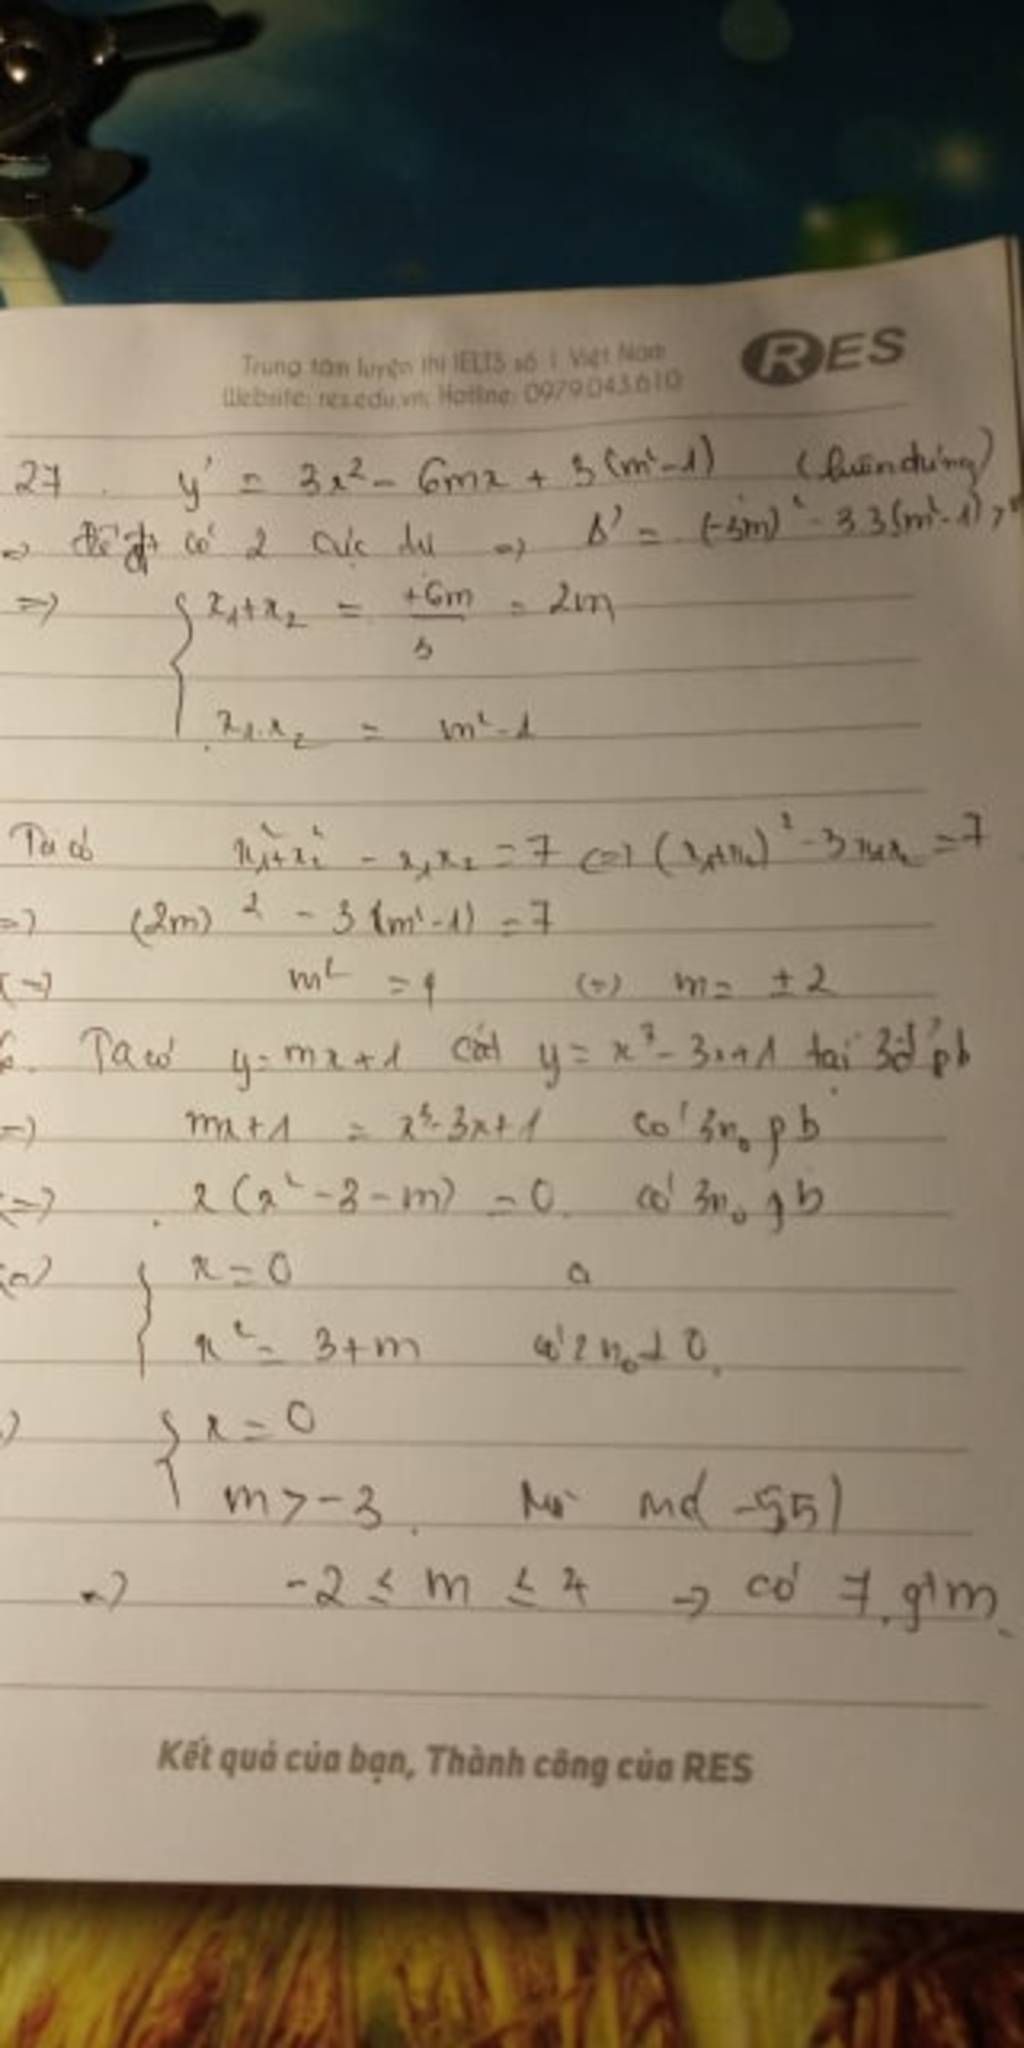 Trung tâm luyện thi IELTS số 1 Việt Nam
RES
Website: res.edu.vn; Hotline: 0979.043.610
27. y' = 3x² - 6mx + 3(m²-1) (luôn đúng)
=> Để có 2 cực => Δ' = (-3m)² - 3.3(m²-1) >
=> { x₁+x₂ = +6m/3 = 2m
x₁.x₂ = m²-1
Ta có x₁²+x₂² - x₁x₂ = 7 (=) (x₁+x₂)² - 3x₁x₂ = 7
=) (2m)² - 3(m²-1) = 7
(=) m² = 4 (=) m = ±2
Ta có y=mx+1 cắt y = x³-3x+1 tại 3đ' pb
=) mx+1 = x³-3x+1 có 3n₀ pb
(=) x(x²-3-m) = 0. có 3n₀ pb
(=) { x=0
x² = 3+m có 2 n₀ ≠ 0.
{ x=0
m>-3. Mà m∈(-5;5)
=) -2 ≤ m ≤ 4 → có 7 gt m.
Kết quả của bạn, Thành công của RES